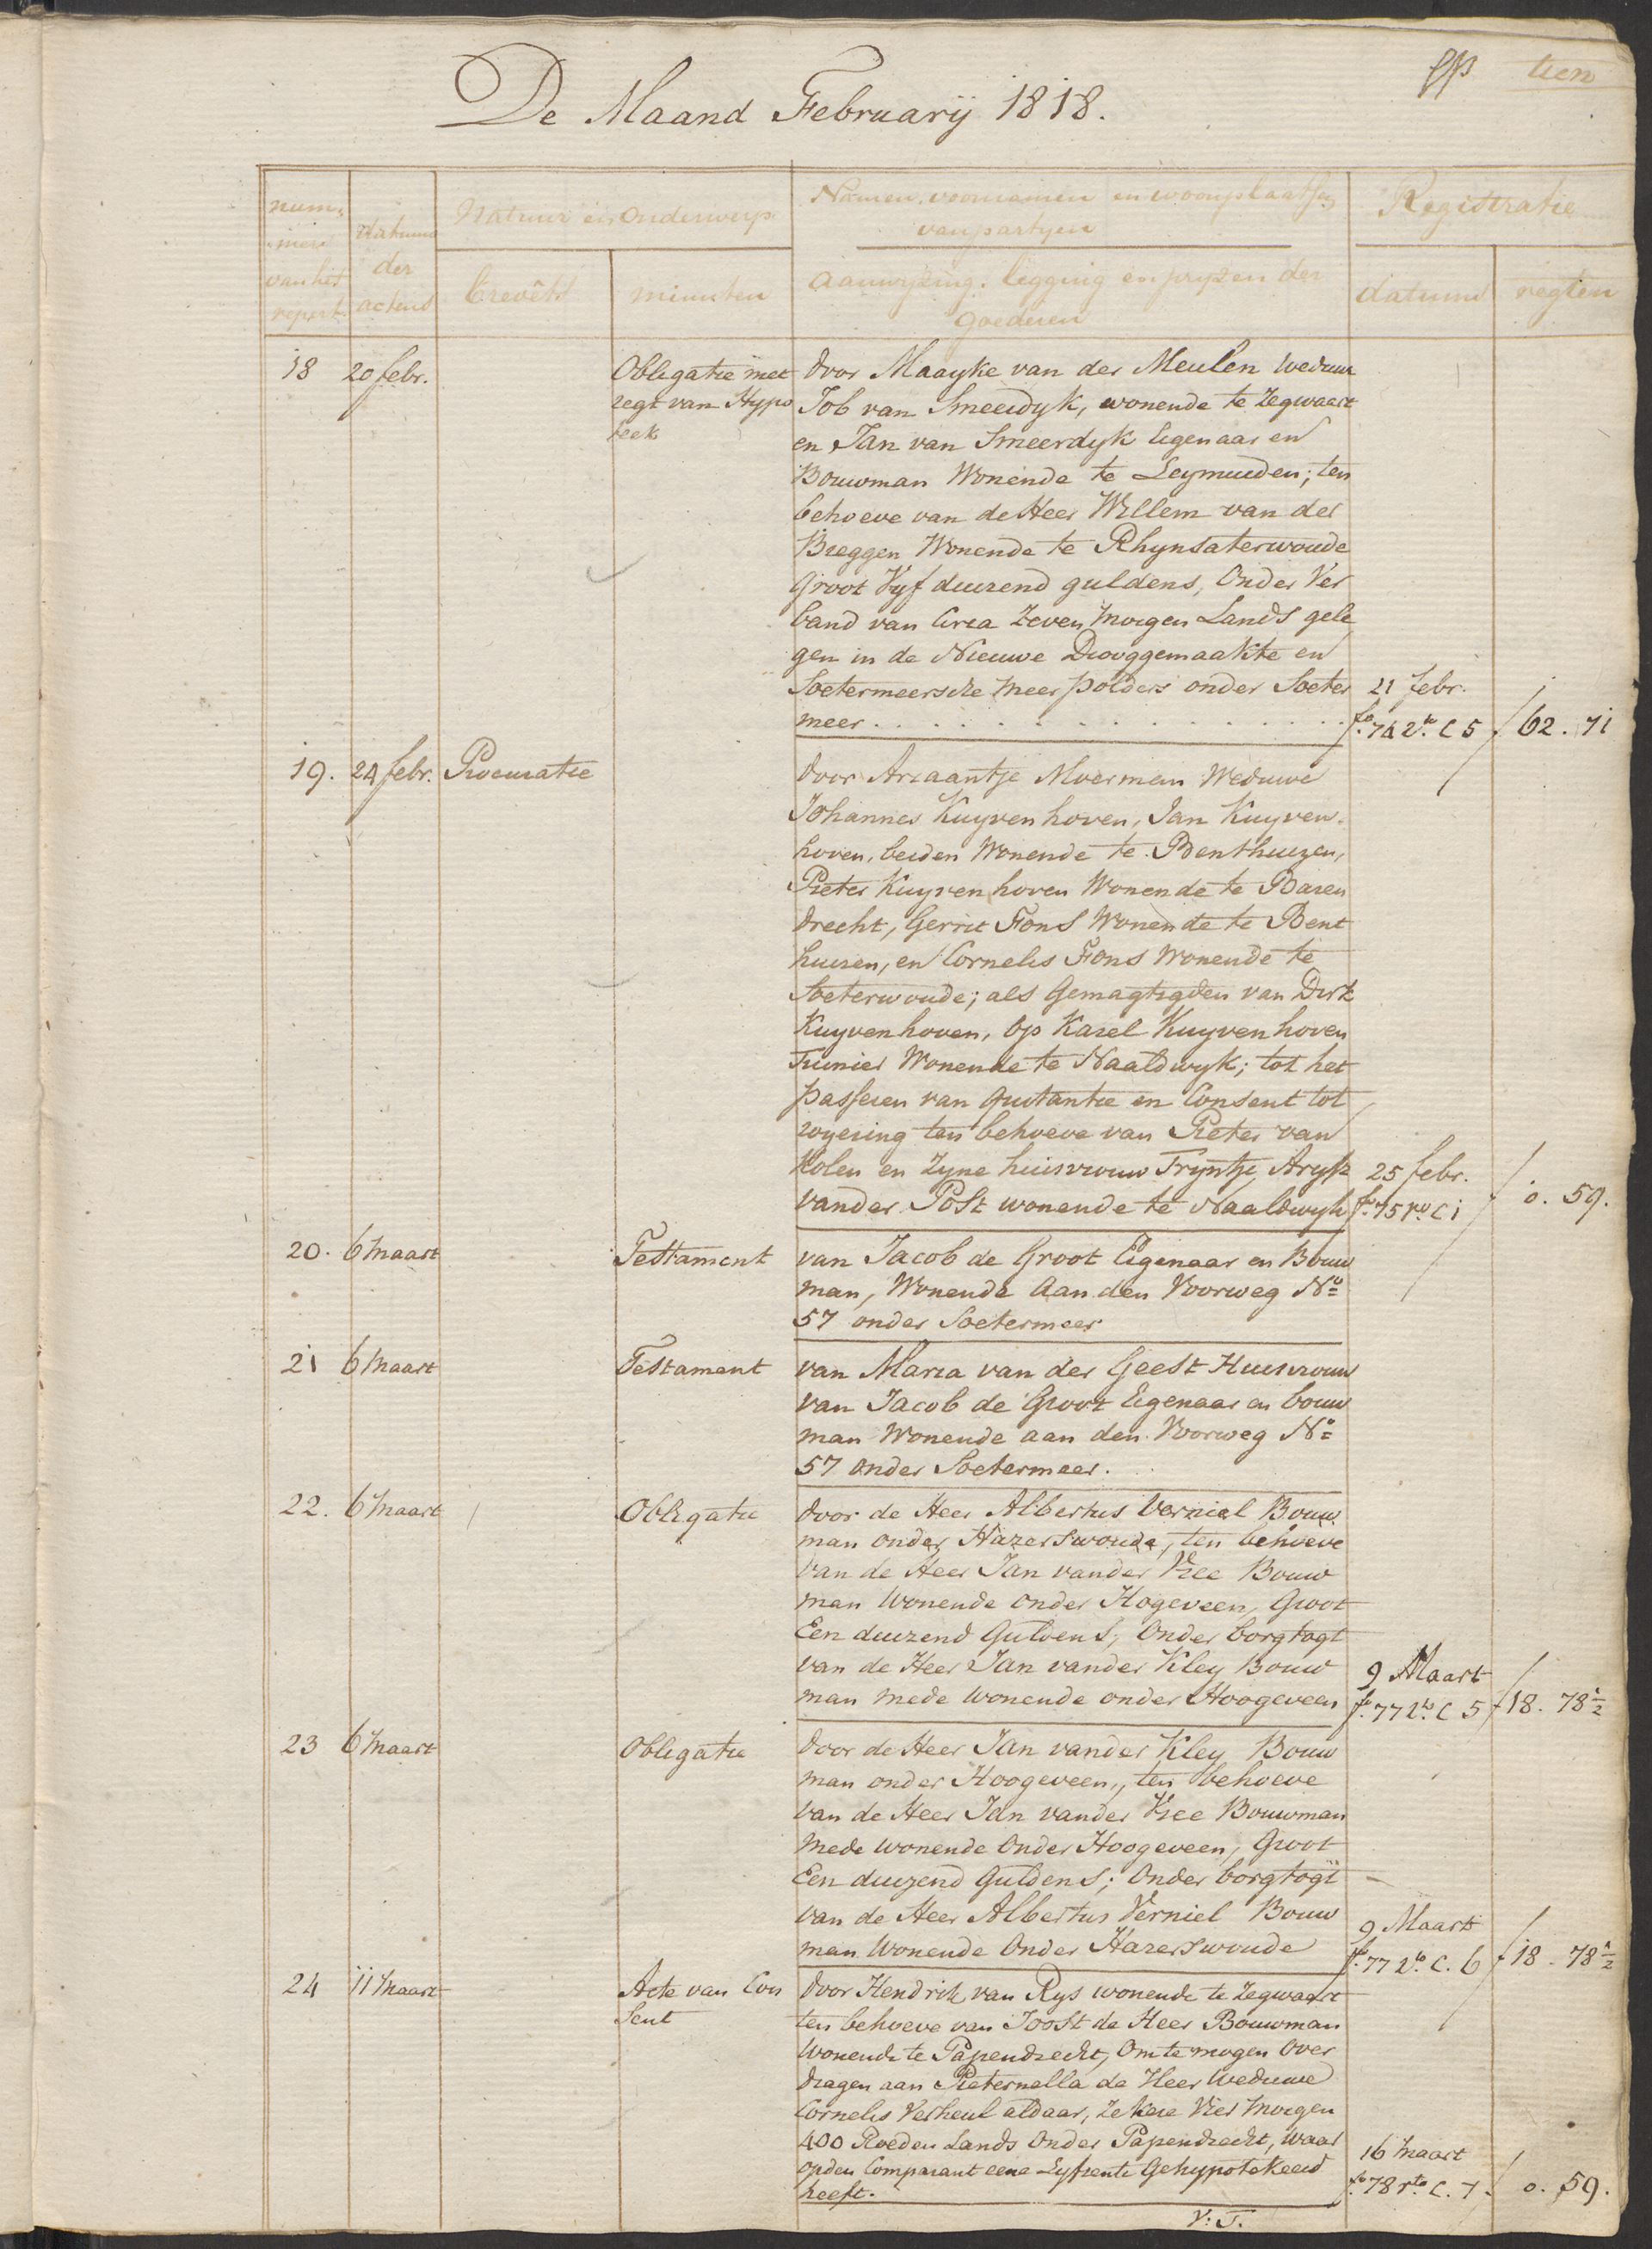 tien
De Maand Februarij 1818.
num-
mers
van het
repert.
datums
der
actens
Natuur en Onderwerp
brevêts
minuten
Namen, voornamen en woonplaatsen
van partijen
aanwyzing, ligging en pryzen der
goederen
Registratie
datums
regten
18 20 febr.
Obligatie met
regt van Hypo
teek
door Maayke van der Meulen weduwe
Job van Smeerdyk, wonende te Zegwaart
en Jan van Smeerdyk Eigenaar en
Bouwman Wonende te Leymuiden; ten
behoeve van de Heer Willem van der
Breggen Wonende te Rhynsaterwoude
Groot Vyf duizend guldens, Onder Ver
band van Circa Zeven Morgen Lands gele
gen in de Nieuwe Drooggemaakte en
Soetermeersche Meerpolders onder Soeter
meer
21 febr.
fo. 74 Vo. C 5
62. 71
19. 24 febr. Procuratie
door Ariaantje Moerman Weduwe
Johannes Kuyvenhoven, Jan Kuyven-
hoven, beiden Wonende te Benthuizen,
Pieter Kuyvenhoven Wonende te Baren
drecht, Gerrit Fons Wonende te Bent
huizen, en Cornelis Fons Wonende te
Soeterwoude; als Gemagtigden van Dirk
Kuyvenhoven, Op Karel Kuyvenhoven
Tuinier Wonende te Naaldwyk; tot het
passeren van Quitantie en Consent tot
royering ten behoeve van Pieter van
Kolen en Zyne huisvrouw Tryntje Arysz
vander Post wonende te Naaldwyk
25 febr.
fo. 75 ro. C 1
0. 59.
20. 6 Maart
Testament
van Jacob de Groot Eigenaar en Bouw
man, Wonende Aan den Voorweg No
57 onder Soetermeer
21 6 Maart
Testament
van Maria van der Geest Huisvrouw
van Jacob de Groot Eigenaar en bouw
man Wonende aan den Voorweg No
57 Onder Soetermeer.
22. 6 Maart
Obligatie
door de Heer Albertus Verniel Bouw
man onder Hazerswoude, ten behoeve
van de Heer Jan vander Vree Bouw
man Wonende onder Hogeveen, Groot
Een duizend Guldens; Onder borgtogt
van de Heer Jan vander Kley Bouw
man mede Wonende onder Hoogeveen
9 Maart
fo. 77 Vo. C 5
18. 78½
23 6 Maart
Obligatie
door de Heer Jan vander Kley Bouw
man onder Hoogeveen, ten behoeve
van de Heer Jan vander Vree Bouwman
mede wonende Onder Hoogeveen, Groot
Een duizend Guldens; Onder borgtogt
van de Heer Albertus Verniel Bouw
man Wonende Onder Hazerswoude
9 Maart
fo. 77 Vo. C. 6
18. 78½
24 11 Maart
Acte van Con
sent
door Hendrik van Rys wonende te Zegwaart
ten behoeve van Joost de Heer Bouwman
Wonende te Papendrecht, Om te mogen Over
dragen aan Pieternella de Heer Weduwe
Cornelis Verheul aldaar, Zekere Vier Morgen
400 Roeden Lands Onder Papendrecht, waar
op den Comparant eene Lyfrente Gehypotekeerd
heeft.
16 Maart
fo. 78 rto. C. 7.
0. 59.
V: T.